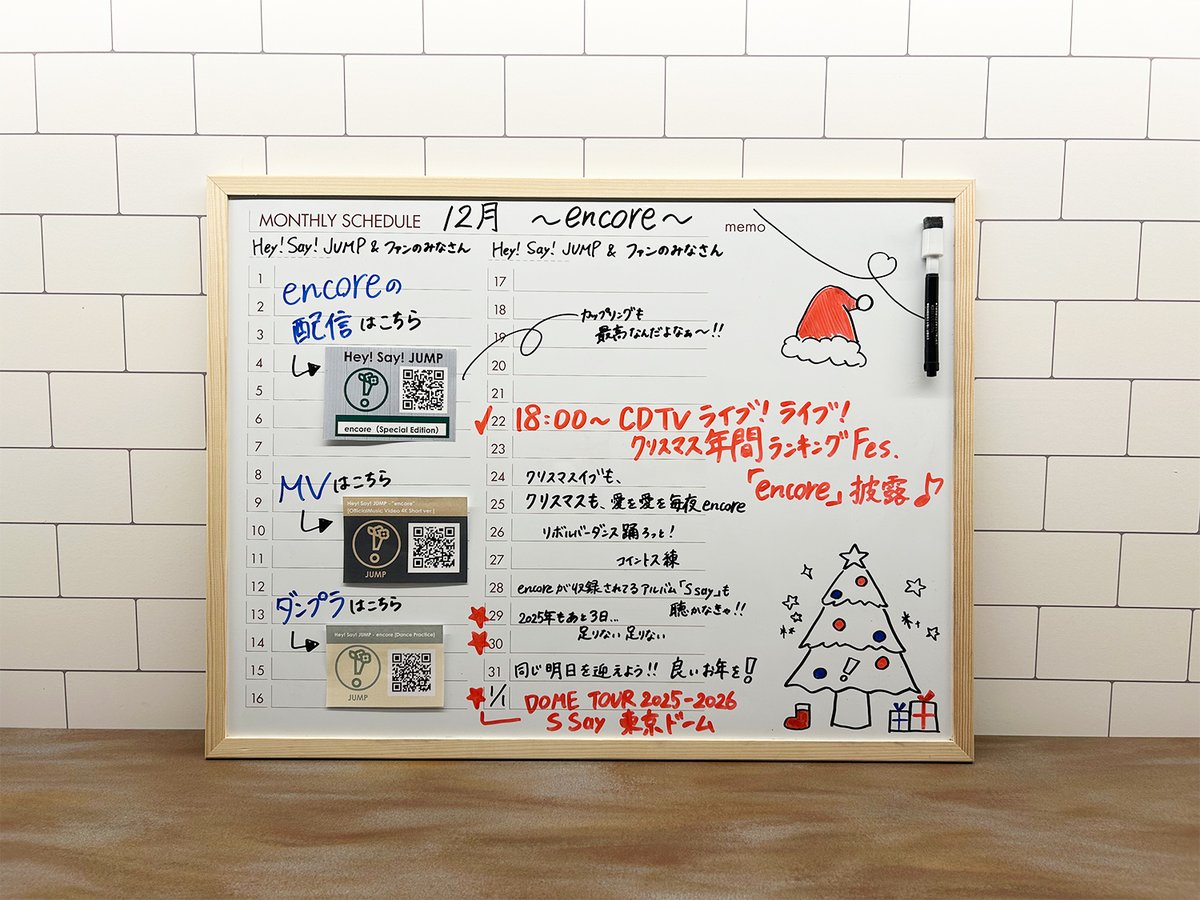 MONTHLY SCHEDULE 12月 ～encore～
memo
Hey! Say! JUMP & ファンのみなさん
1
2
3
4
5
6
7
8
9
10
11
12
13
14
15
16
encoreの
配信はこちら
Hey! Say! JUMP
encore (Special Edition)
MVはこちら
Hey! Say! JUMP - "encore"
[OfficialMusic Video 4K Short ver.]
JUMP
ダンプラはこちら
Hey! Say! JUMP - encore [Dance Practice]
JUMP
Hey! Say! JUMP & ファンのみなさん
17
18 カップリングも
19 最高なんだよなぁ～!!
20
21
22 18:00～ CDTV ライブ! ライブ!
23 クリスマス年間ランキングFes.
「encore」披露♪
24 クリスマスイブも、
25 クリスマスも、愛を愛を毎夜encore
26 リボルバーダンス踊ろっと!
27 コイントス練
28 encoreが収録されてるアルバム「S say」も
聴かなきゃ!!
29 2025年もあと3日...
30 足りない足りない
31 同じ明日を迎えよう!! 良いお年を!
1/1 DOME TOUR 2025-2026
S Say 東京ドーム